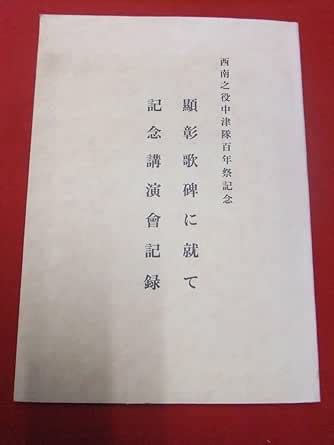 西南之役中津隊百年祭記念
顯彰歌碑に就て
記念講演會記録